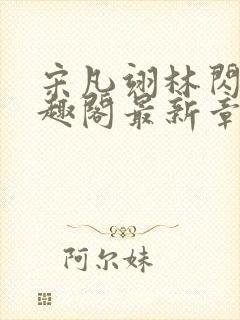 宋凡翊林閃
趣閣最新章
阿尔妹